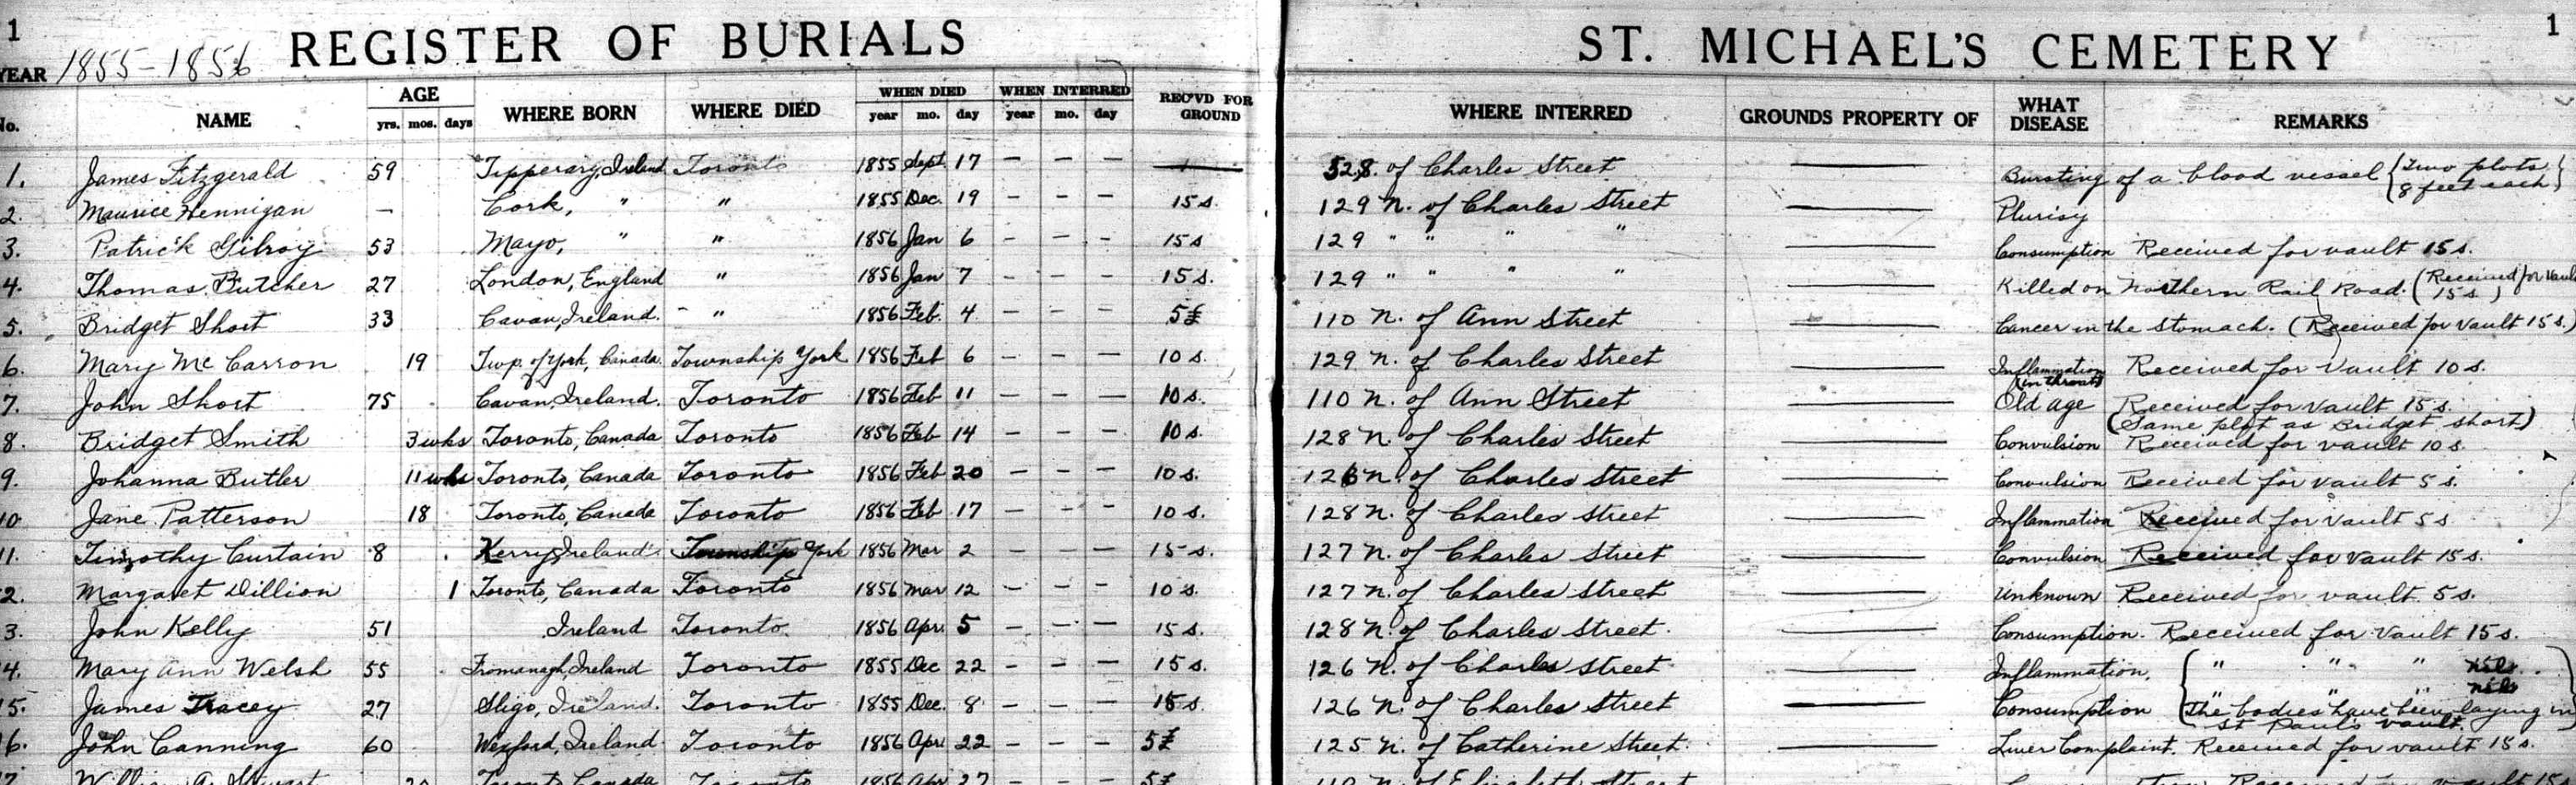 1 REGISTER OF BURIALS ST. MICHAEL'S CEMETERY 1
YEAR 1855-1856
No. NAME AGE yrs. mos. days WHERE BORN WHERE DIED WHEN DIED year mo. day WHEN INTERRED year mo. day REC'VD FOR GROUND WHERE INTERRED GROUNDS PROPERTY OF WHAT DISEASE REMARKS
1. James Fitzgerald 59 Tipperary, Ireland Toronto 1855 Sept. 17 — — — — S. of Charles Street — Bursting of a blood vessel {Two plots 8 feet each}
2. Maurice Hennigan — Cork, " " 1855 Dec. 19 — — — 15 s. 129 N. of Charles Street — Plurisy
3. Patrick Gilroy 53 Mayo, " " 1856 Jan 6 — — — 15 s 129 " " " " — Consumption Received for vault 15 s.
4. Thomas Butcher 27 London, England " 1856 Jan 7 — — — 15 s. 129 " " " " — Killed on Northern Rail Road. (Received for Vault 15 s)
5. Bridget Short 33 Cavan, Ireland. " 1856 Feb. 4 — — — 5£ 110 N. of Ann Street — Cancer in the stomach. (Received for vault 15 s.)
6. Mary McCarron 19 Twp. of York, Canada. Township York 1856 Feb 6 — — — 10 s. 129 N. of Charles Street — Inflammation (in throat) Received for vault 10 s.
7. John Short 75 Cavan, Ireland. Toronto 1856 Feb 11 — — — 10 s. 110 N. of Ann Street — Old age Received for vault 15 s. (Same plot as Bridget Short)
8. Bridget Smith 3 wks Toronto, Canada Toronto 1856 Feb 14 — — — 10 s. 128 N. of Charles Street — Convulsion Received for vault 10 s.
9. Johanna Butler 11 wks Toronto, Canada Toronto 1856 Feb 20 — — — 10 s. N. of Charles Street — Convulsion Received for vault 5 s.
10. Jane Patterson 18 Toronto, Canada Toronto 1856 Feb 17 — — — 10 s. 128 N. of Charles Street — Inflammation Received for vault 5 s
11. Timothy Curtain 8 Kerry, Ireland Township York 1856 Mar 2 — — — 15 s. 127 N. of Charles Street — Convulsion Received for vault 15 s.
2. Margaret Dillion 1 Toronto, Canada Toronto 1856 Mar 12 — — — 10 s. 127 N. of Charles Street — Unknown Received for vault 5 s.
3. John Kelly 51 Ireland Toronto. 1856 Apr. 5 — — — 15 s. 128 N. of Charles Street. — Consumption. Received for vault 15 s.
4. Mary Ann Welsh 55 Fromanagh, Ireland Toronto 1855 Dec 22 — — — 15 s. 126 N. of Charles Street — Inflammation. { " " "
5. James Tracey 27 Sligo, Ireland. Toronto 1855 Dec. 8 — — — 15 s. 126 N. of Charles Street — Consumption {The bodies have been laying in St Paul's vault.}
6. John Canning 60 Wexford, Ireland. Toronto 1856 Apr 22 — — — 5£ 125 N. of Catherine Street. — Liver Complaint. Received for vault 15 s.
7. William A. Stewart Toronto, Canada Toronto 1856 Apr 27 5£ 110 N. of Elizabeth Street Received vault 15 s